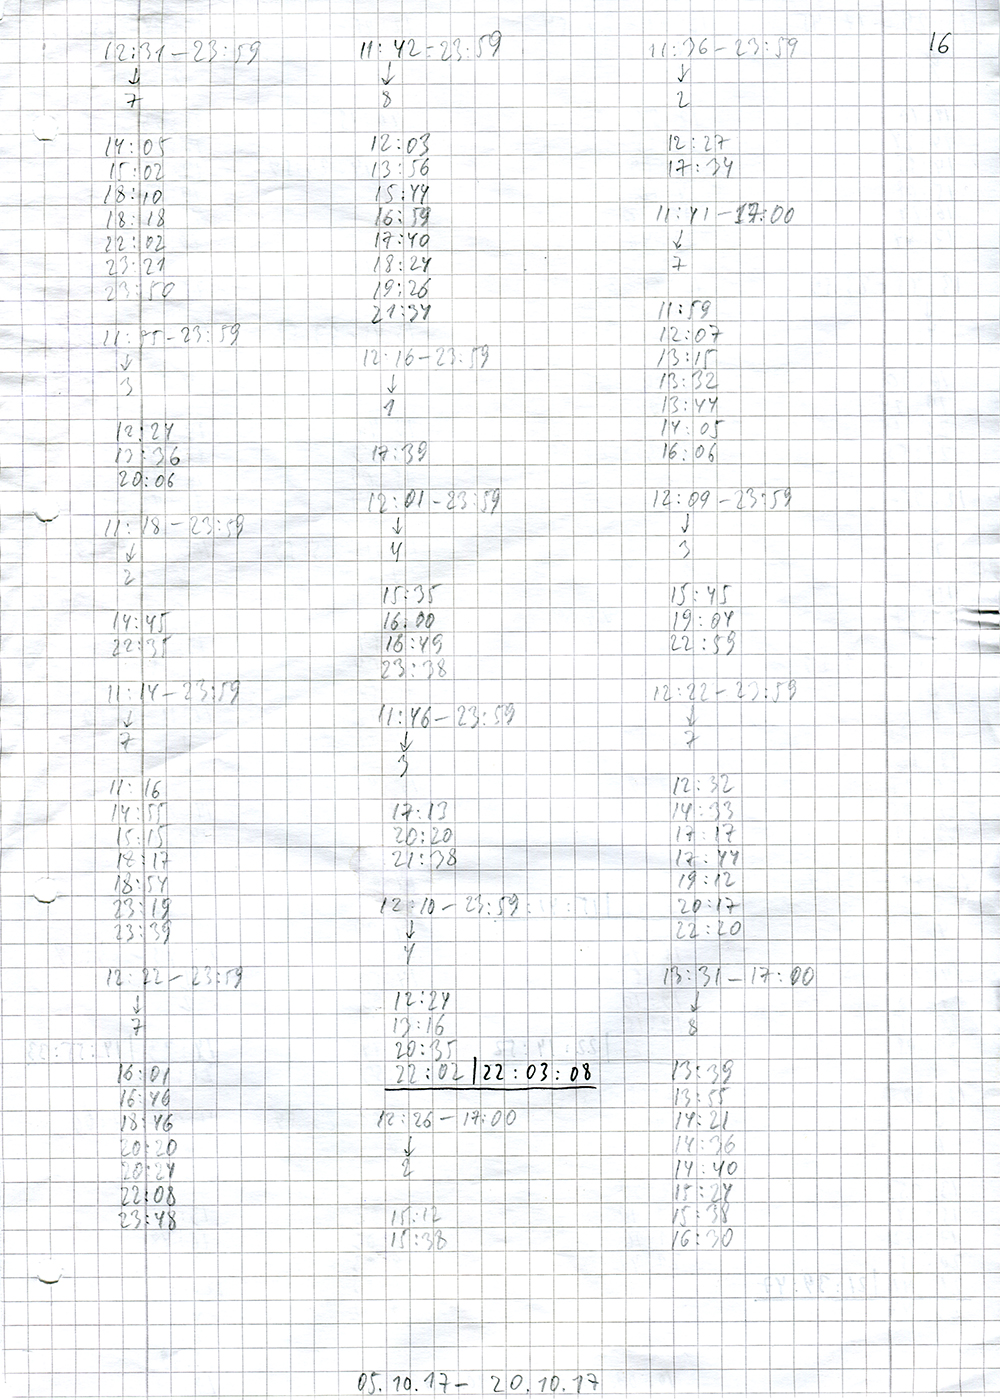 16
12:31-23:59
↓
7
14:05
15:02
18:10
18:18
22:02
23:21
23:50
11:55-23:59
↓
3
12:24
13:36
20:06
11:18-23:59
↓
2
14:45
22:35
11:14-23:59
↓
7
11:16
14:55
15:15
18:17
18:54
23:19
23:39
12:22-23:59
↓
7
16:01
16:46
18:46
20:20
20:24
22:08
23:48
11:42-23:59
↓
8
12:03
13:56
15:44
16:59
17:40
18:24
19:26
21:34
12:16-23:59
↓
1
17:39
12:01-23:59
↓
4
15:35
16:00
18:49
23:38
11:46-23:59
↓
3
17:13
20:20
21:38
12:10-23:59
↓
4
12:24
13:16
20:35
22:02 | 22:03:08
12:26-17:00
↓
2
15:12
15:38
11:36-23:59
↓
2
12:27
17:34
11:41-17:00
↓
7
11:59
12:07
13:15
13:32
13:44
14:05
16:06
12:09-23:59
↓
3
15:45
19:04
22:59
12:22-23:59
↓
7
12:32
14:33
17:17
17:44
19:12
20:17
22:20
13:31-17:00
↓
8
13:39
13:55
14:21
14:36
14:40
15:24
15:38
16:30
05.10.17- 20.10.17